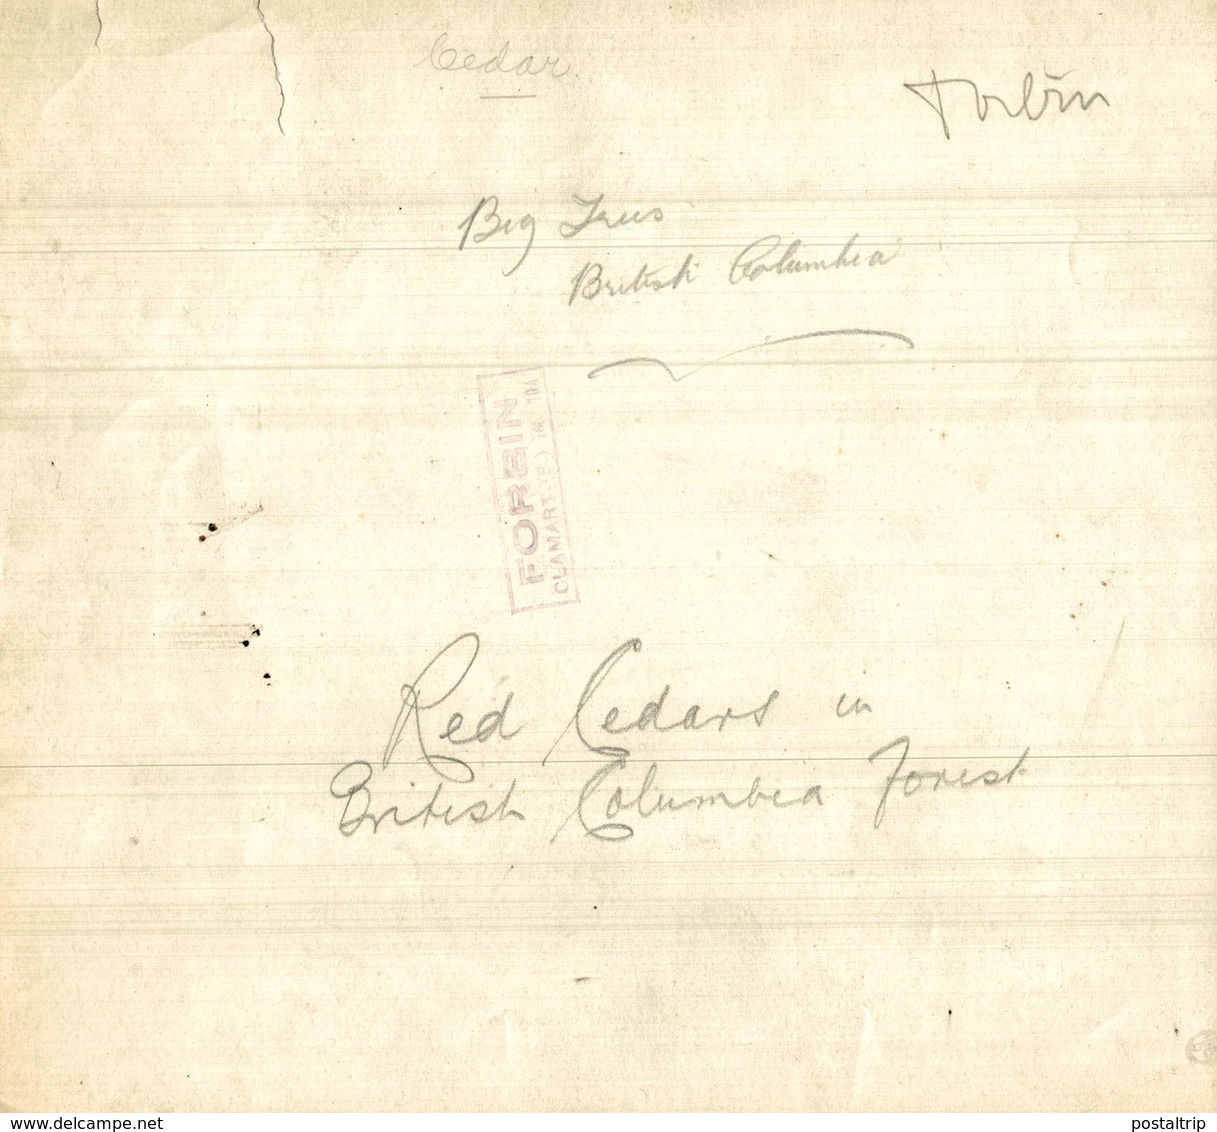 Cedar
Forbin
Big Trees
British Columbia
FORBIN
CLAMART
Red Cedars in
British Columbia Forest
www.delcampe.net
postaltrip